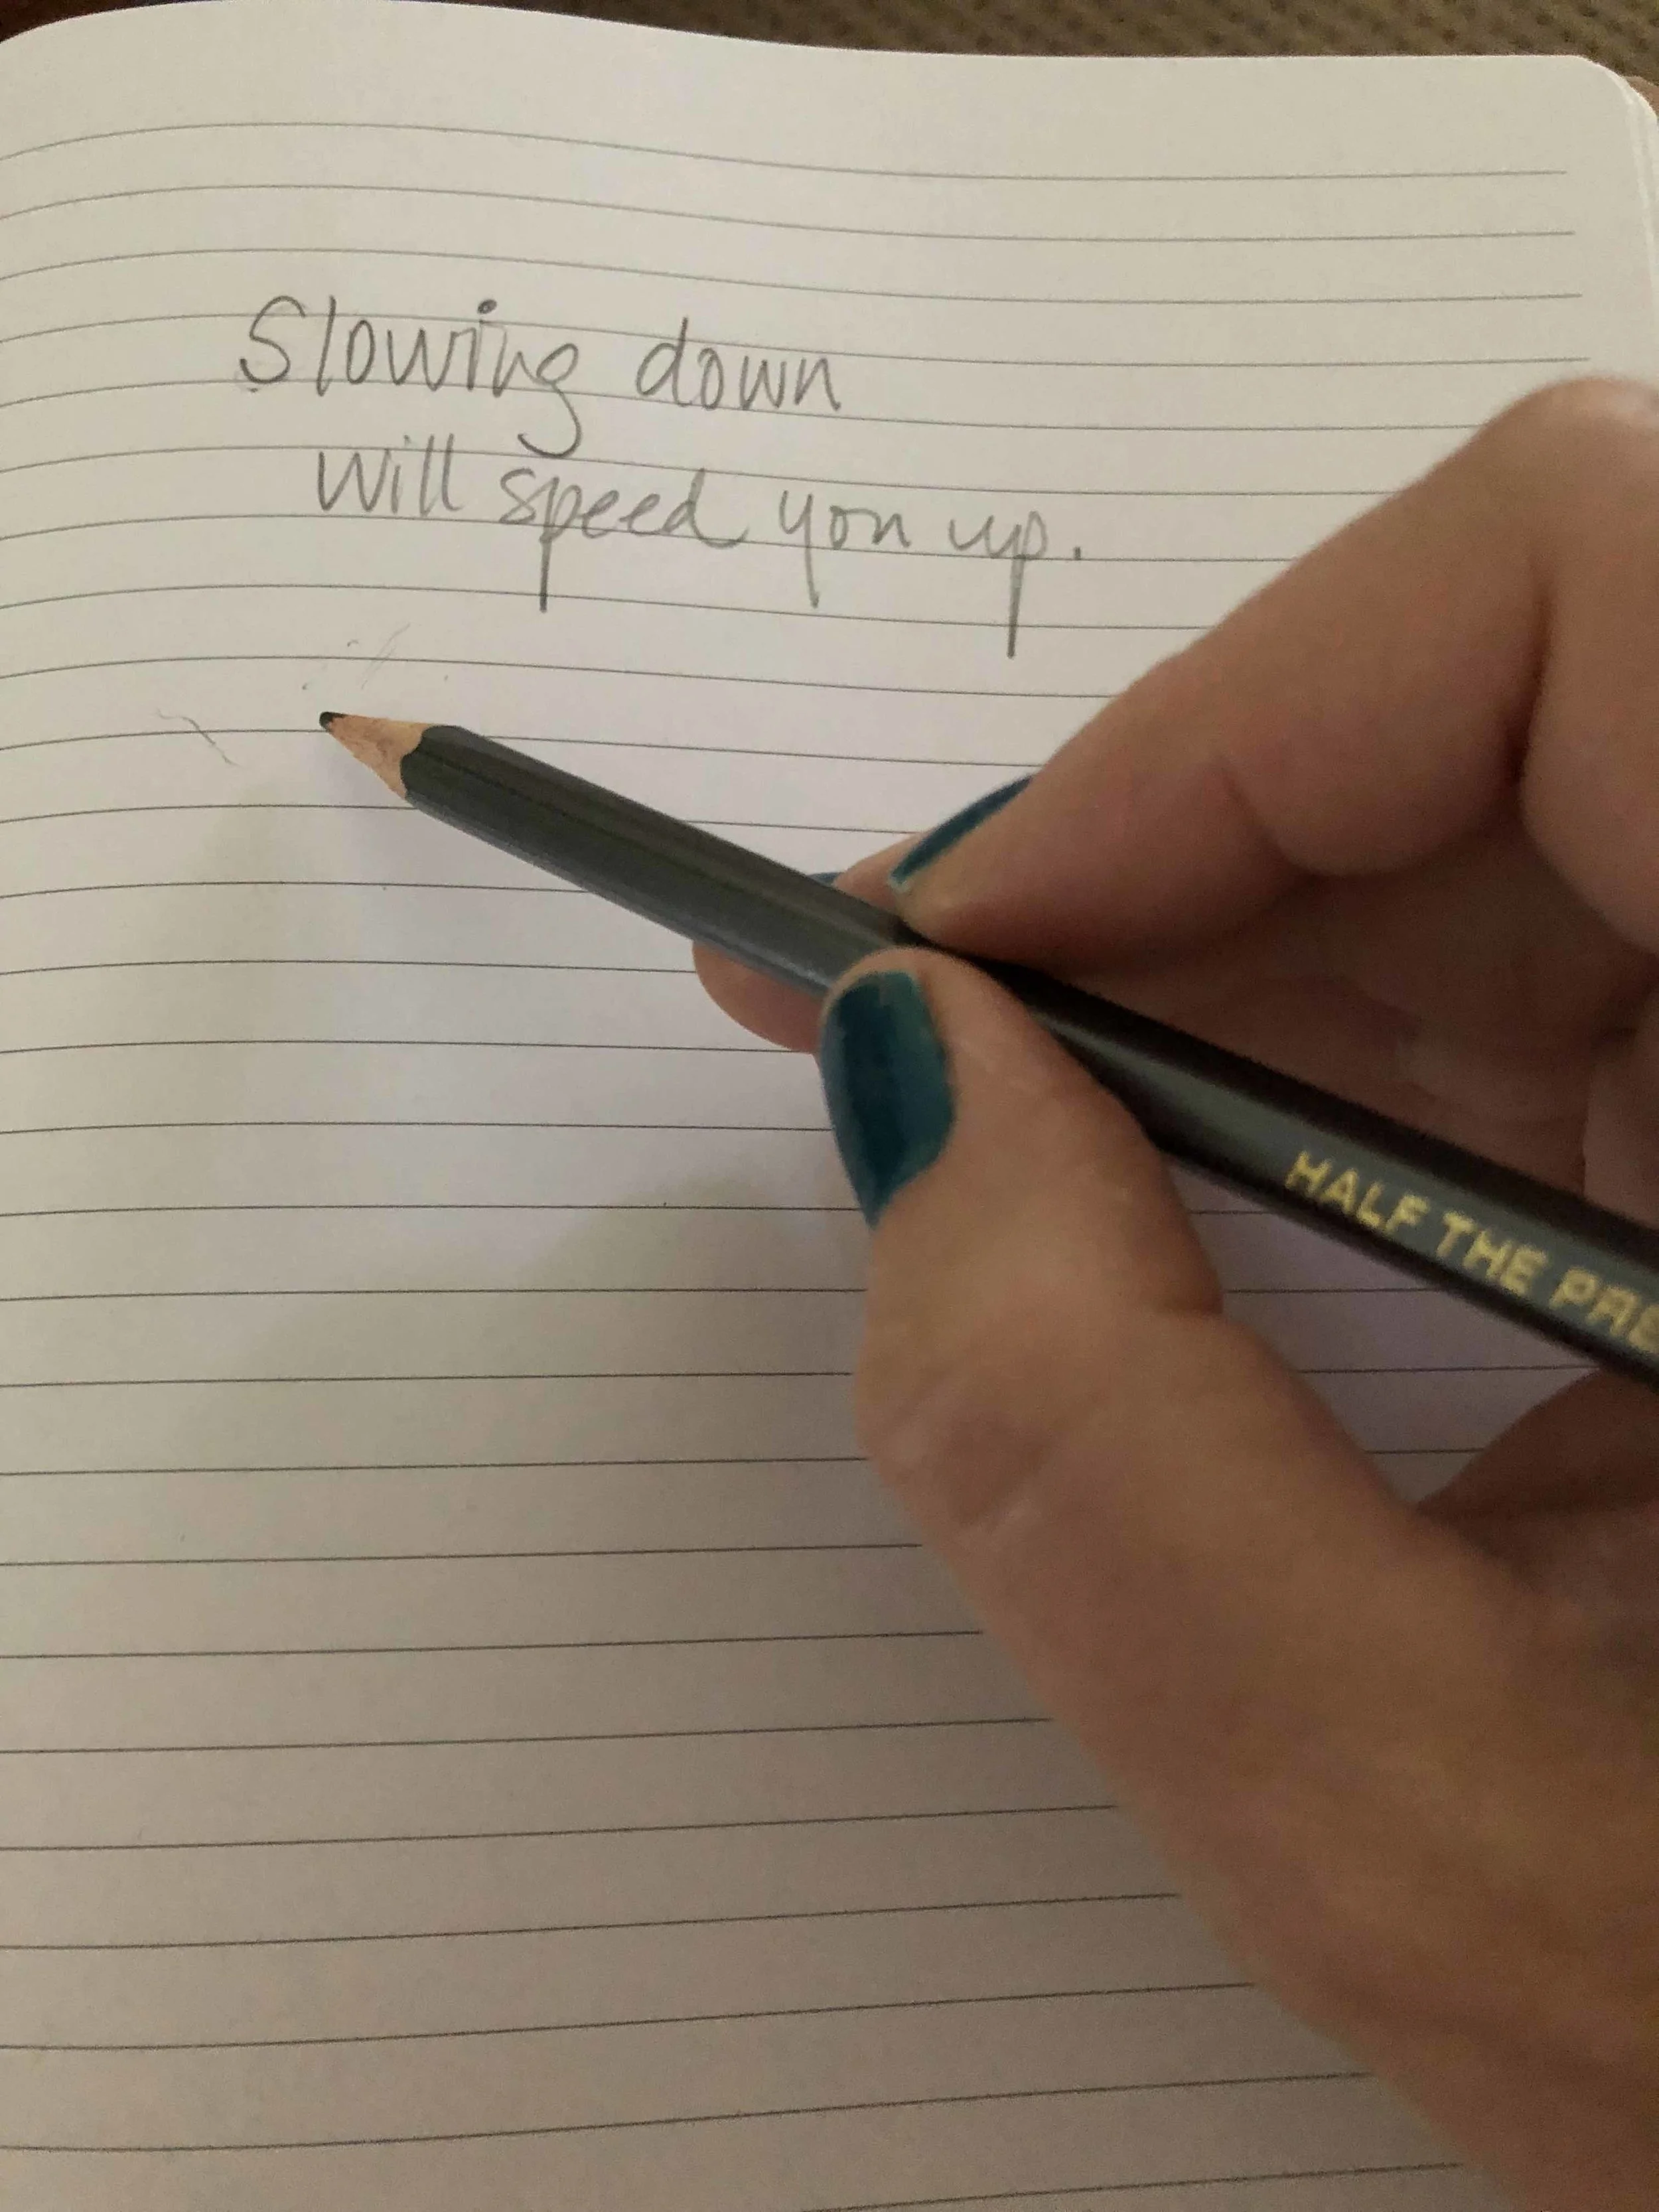 Slowing down
will speed you up.
HALF THE PRE